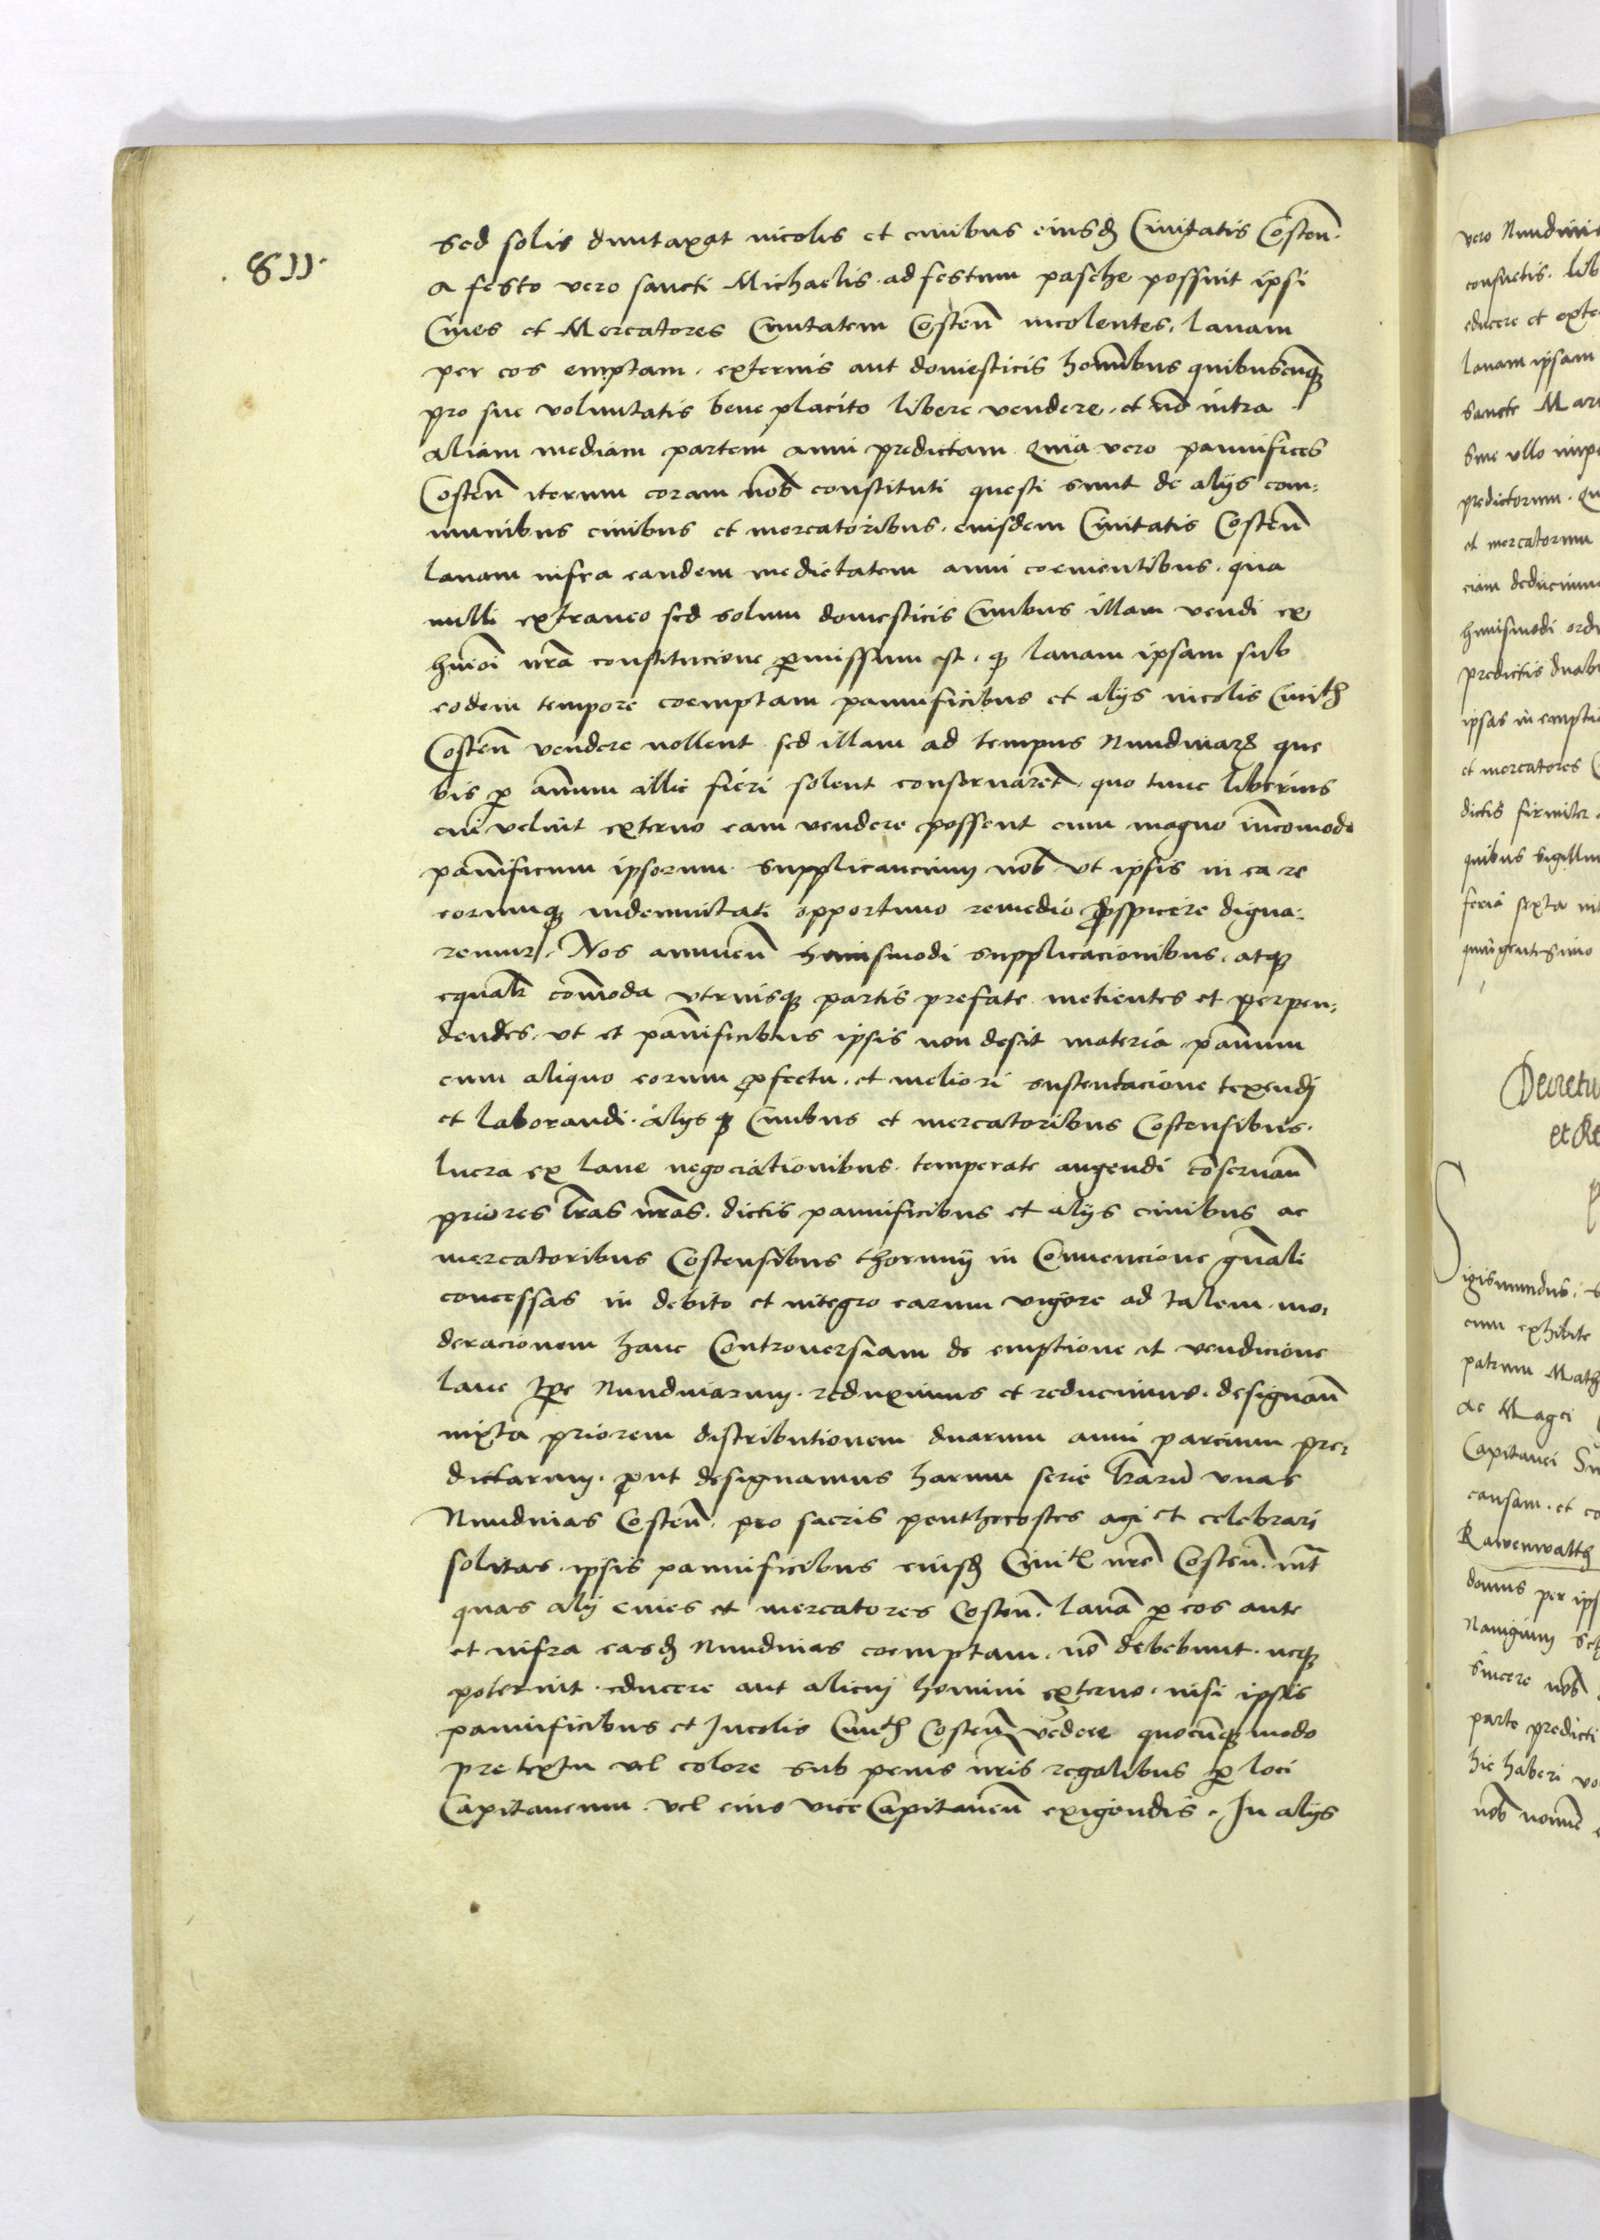 .811.
sed solis duntaxat incolis et ciuibus eiusd Ciuitatis Costen̄.
a festo vero sancti Michaelis. ad festum pasche possint ipsi
Ciues et Mercatores Ciuitatem Costen̄ incolentes. lanam
per eos emptam. externis aut domesticis hominibus quibuscunq
pro sue voluntatis bene placito libere vendere. et nō intra
aliam mediam partem anni predictam. Quia vero pannifices
Costen̄ iterum coram nob constituti questi sunt de alijs com:
munibus ciuibus et mercatoribus. eiusdem Ciuitatis Costen̄
lanam infra eandem medietatem anni coementibus. qua
nulli extraneo sed solum domesticis Ciuibus illam vendi ex
huiōi nrā constitucione pmissum est. q lanam ipsam sub
eodem tempore coemptam pannificibus et alijs incolis Ciuitt
Costen̄ vendere nollent sed illam ad tempus Nundinar que
bis p annum illic fieri solent conseruarent. quo tunc liberius
cui velint externo eam vendere possent cum magno incōmodo
pannificum ipsorum. supplicaruntq nob vt ipsis in ea re
eorumq indemnitati opportuno remedio pspicere digna:
remur. Nos annuen̄ huiusmodi supplicacionibus. atq
equalr commoda vtriusq partis prefate metientes et perpen:
dendes. vt et pannificibus ipsis non desit materia pannum
cum aliquo eorum pfectu. et meliori sustentacione texendi
et laborandi. alijs q Ciuibus et mercatoribus Costensibus.
lucra ex lane negociationibus. temperate augendi conseruan̄
priores lras nras. dictis pannificibus et alijs ciuibus ac
mercatoribus Costensibus thorunij in Conuencione gnali
concessas in debito et integro earum vigore ad talem mo:
deracionem hanc Controuersiam de emptione et vendicione
lane tpe Nundinarum. reduximus et reducimus. designan̄
iuxta priorem distributionem duarum anni parcium pre:
dictarum. put designamus harum serie lrarū vnas
Nundinas Costen̄. pro sacris penthecostes agi et celebrari
solitas. ipsis pannificibus eiusd Ciuitt nre Costen̄. intr
quas alij ciues et mercatores Costen̄. lanā p eos ante
et infra easd Nundinas coemptam. nō debebunt. neq
poterint. educere aut alicui homini externo. nisi ipsis
pannificibus et Incolis Ciuitt Costen̄ vēdere quocūq modo
pretextu vel colore sub penis nris regalibus p loci
Capitaneum. vel eius vice Capitaneū exigendis. In alijs
vero Nundini
consuetis. lib
educere et exte
lanam ipsam
sancte Mar
sine vllo impe
predictorum. Qu
et mercatorum
eiam deducimu
huiusmodi ordi
predictis duab
ipsas in empti
et mercatores
dictis firmiter
quibus sigillu
feria sexta
quingentesimo
Decretu
et Re
Sigismundus.
cum exhibite
patrum Math
ac Magci
Capitanei Su
causam. et co
Rawenwalth
domus per ips
Nauigium
sincere nob
parte predicti
hic haberi vo
nob nomine